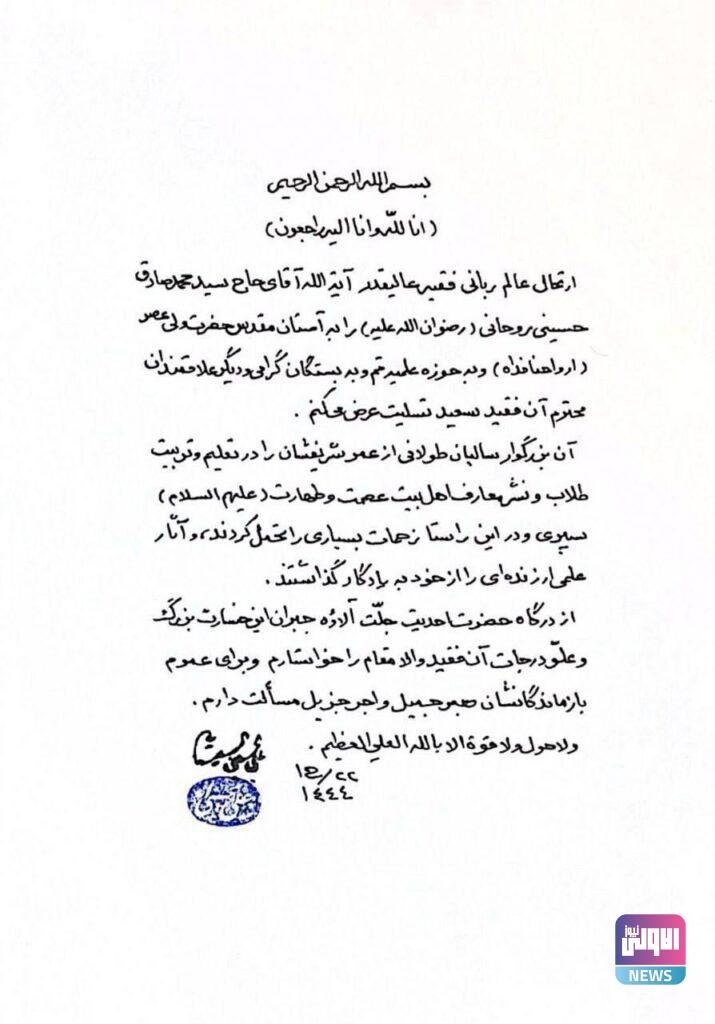 بسم الله الرحمن الرحیم
(انا لله وانا الیه راجعون)
ارتحال عالم ربانی فقیه عالیقدر آیة الله آقای حاج سید محمد صادق
حسینی روحانی (رضوان الله علیه) را به آستان مقدس حضرت ولی عصر
(ارواحنا فداه) وبه حوزه علمیه قم وبه بستگان گرامی ودیگر علاقمندان
محترم آن فقید سعید تسلیت عرض میکنم .
آن بزرگوار سالیان طولانی از عمر شریفشان را در تعلیم وتربیت
طلاب ونشر معارف اهل بیت عصمت وطهارت (علیهم السلام)
سپری ودر این راستا زحمات بسیاری را تحمل کردند، وآثار
علمی ارزنده ای را از خود به یادگار گذاشتند .
از درگاه حضرت احدیت جلّت آلاؤه جبران این خسارت بزرگ
وعلوّ درجات آن فقید والا مقام را خواستارم وبرای عموم
بازماندگانشان صبر جمیل واجر جزیل مسألت دارم .
ولا حول ولا قوة الا بالله العلي العظیم .
۲۲/ع۱
۱۴۴۴
الاولى نيوز
NEWS